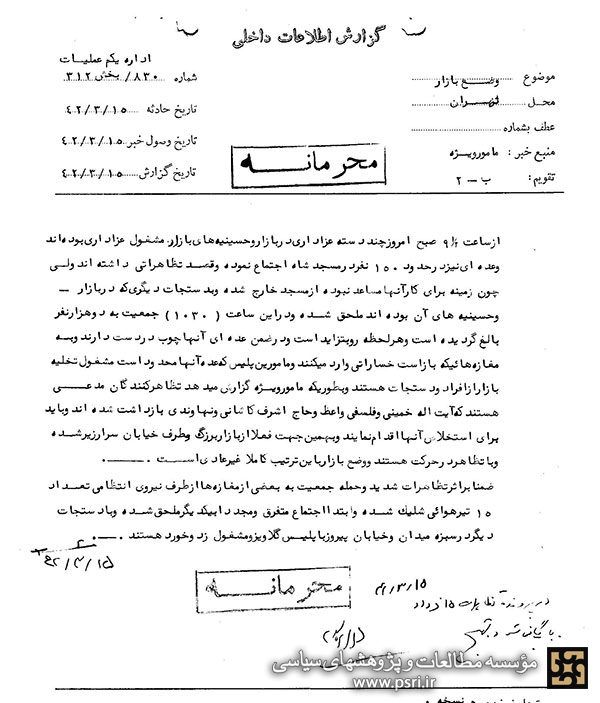 گزارش اطلاعات داخلی
اداره یکم عملیات
موضوع وضع بازار
شماره ۸۳۰/ بخش ۳۱۲
محل تهران
تاریخ حادثه ۴۲/۳/۱۵
عطف بشماره
تاریخ وصول خبر ۴۲/۳/۱۵
منبع خبر: ماموریژه
تاریخ گزارش ۴۲/۳/۱۵
تقویم: ب - ۲
محرمانه
از ساعت ۹/۵ صبح امروز چند دسته عزاداری در بازار و حسینیه های بازار مشغول عزاداری بوده اند
وعده ای نیز در حدود ۱۵۰ نفر در مسجد شاه اجتماع نموده و قصد تظاهراتی داشته اند ولی
چون زمینه برای کار آنها مساعد نبوده از مسجد خارج شده و بدستجات دیگری که در بازار -
وحسینیه های آن بوده اند ملحق شده و در این ساعت (۱۰۳۰) جمعیت به دو هزار نفر
بالغ گردیده است و هر لحظه رو بتزاید است و در ضمن عده ای آنها چوب در دست دارند و به
مغازه هائیکه باز است خساراتی وارد میکنند و مامورین پلیس که عده آنها محدود است مشغول تخلیه
بازار از افراد و دستجات هستند و بطوریکه ماموریژه گزارش میدهد تظاهر کنندگان مدعی
هستند که آیت اله خمینی و فلسفی واعظ و حاج اشرف کاشانی و نهاوندی بازداشت شده اند و باید
برای استخلاص آنها اقدام نمایند و بهمین جهت فعلا از بازار بزرگ و طرف خیابان سرازیر شده
و با تظاهر در حرکت هستند و وضع بازار باین ترتیب کاملا غیرعادی است .
ضمنا بر اثر تظاهرات شدید و حمله جمعیت به بعضی از مغازه ها از طرف نیروی انتظامی تعداد
۱۵ تیر هوائی شلیک شده و ابتدا اجتماع متفرق و مجددا بیکدیگر ملحق شده و با دستجات
دیگر در سبزه میدان و خیابان پیروز با پلیس گلاویز و مشغول زد و خورد هستند .
۴۲/۳/۱۵
محرمانه
۴۲/۳/۱۵
در پرونده تظاهرات ۱۵ خرداد
بایگانی شود
مؤسسه مطالعات و پژوهشهای سیاسی
www.psri.ir